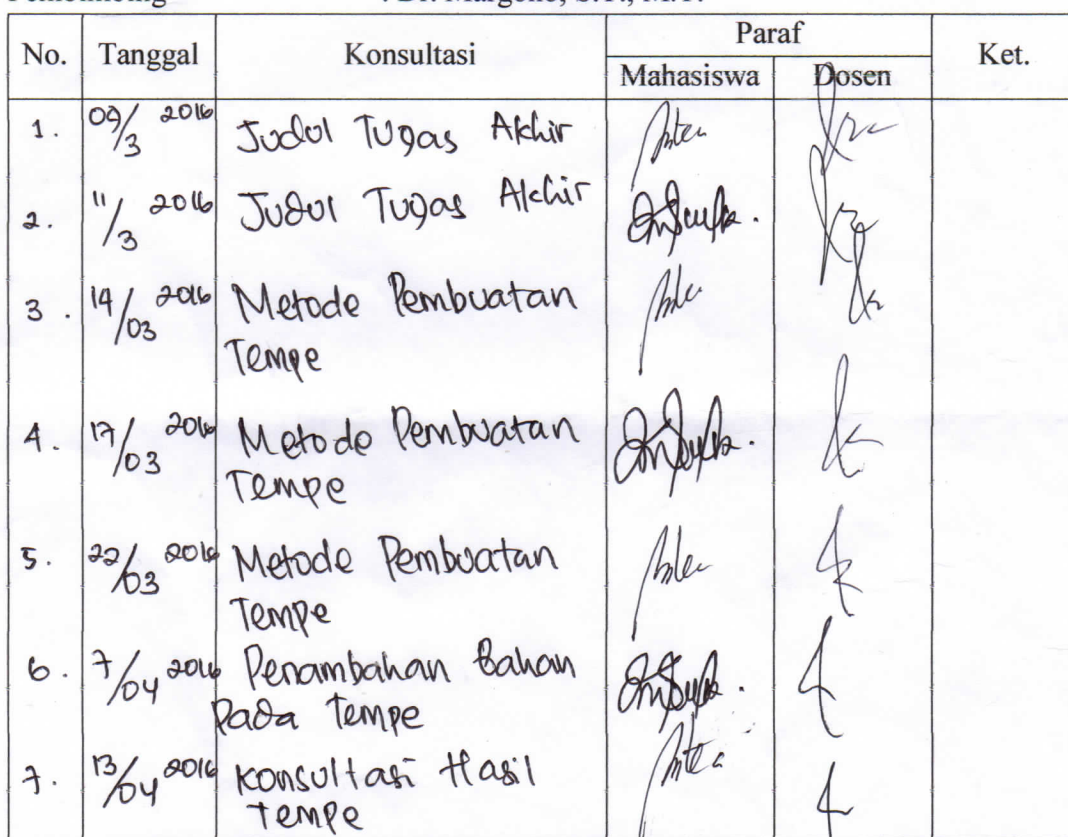 : Dr. Margono, S.T., M.T.
No. Tanggal Konsultasi Paraf Ket.
Mahasiswa Dosen
1. 09/3 2016 Judul Tugas Akhir
2. 11/3 2016 Judul Tugas Akhir
3. 14/03 2016 Metode Pembuatan
Tempe
4. 17/03 2016 Metode Pembuatan
Tempe
5. 22/03 2016 Metode Pembuatan
Tempe
6. 7/04 2016 Penambahan Bahan
Pada Tempe
7. 13/04 2016 Konsultasi Hasil
Tempe